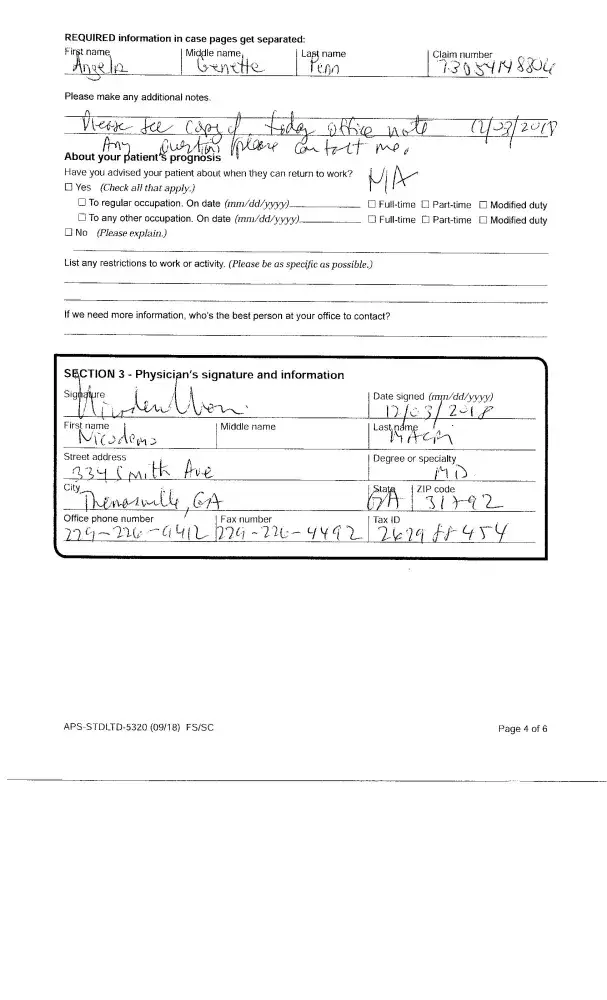 REQUIRED information in case pages get separated:
First name Middle name Last name Claim number
Angela Genette Penn
Please make any additional notes.
Please see copy of today office note 12/03/2018
Any question please contact me.
About your patient's prognosis
Have you advised your patient about when they can return to work? N/A
☐ Yes (Check all that apply.)
☐ To regular occupation. On date (mm/dd/yyyy) ☐ Full-time ☐ Part-time ☐ Modified duty
☐ To any other occupation. On date (mm/dd/yyyy) ☐ Full-time ☐ Part-time ☐ Modified duty
☐ No (Please explain.)
List any restrictions to work or activity. (Please be as specific as possible.)
If we need more information, who's the best person at your office to contact?
SECTION 3 - Physician's signature and information
Signature Date signed (mm/dd/yyyy)
12/03/2018
First name Middle name Last name
Nicodemo Macri
Street address Degree or specialty
334 Smith Ave MD
City State ZIP code
Thomasville, GA GA 31792
Office phone number Fax number Tax ID
229-226-9412 229-226-4492
APS-STDLTD-5320 (09/18) FS/SC Page 4 of 6